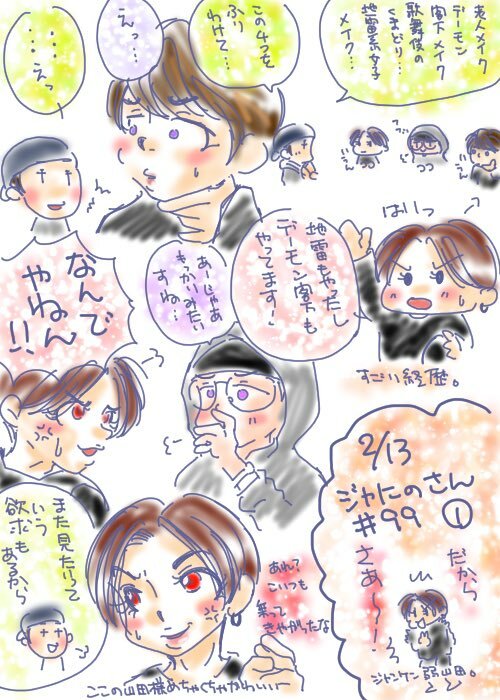 老人メイク
デーモン
閣下メイク
歌舞伎の
くまどり…
地雷系女子
メイク…
この4つを
ふり
わけて…
えっ…
…えっ
はいっ
地雷もやったし
デーモン閣下も
やってます!
すごい経歴。
あーじゃあ
もっかいみたい
すね…
なんで
やねん
!!
2/13
ジャにのさん
#99 ①
だから
さぁ〜!
ジャンケン弱山田。
また見たいって
いう
欲求も
あるから
あれ?
こいつも
乗って
きやがったな
ここの山田様めちゃくちゃかわいい